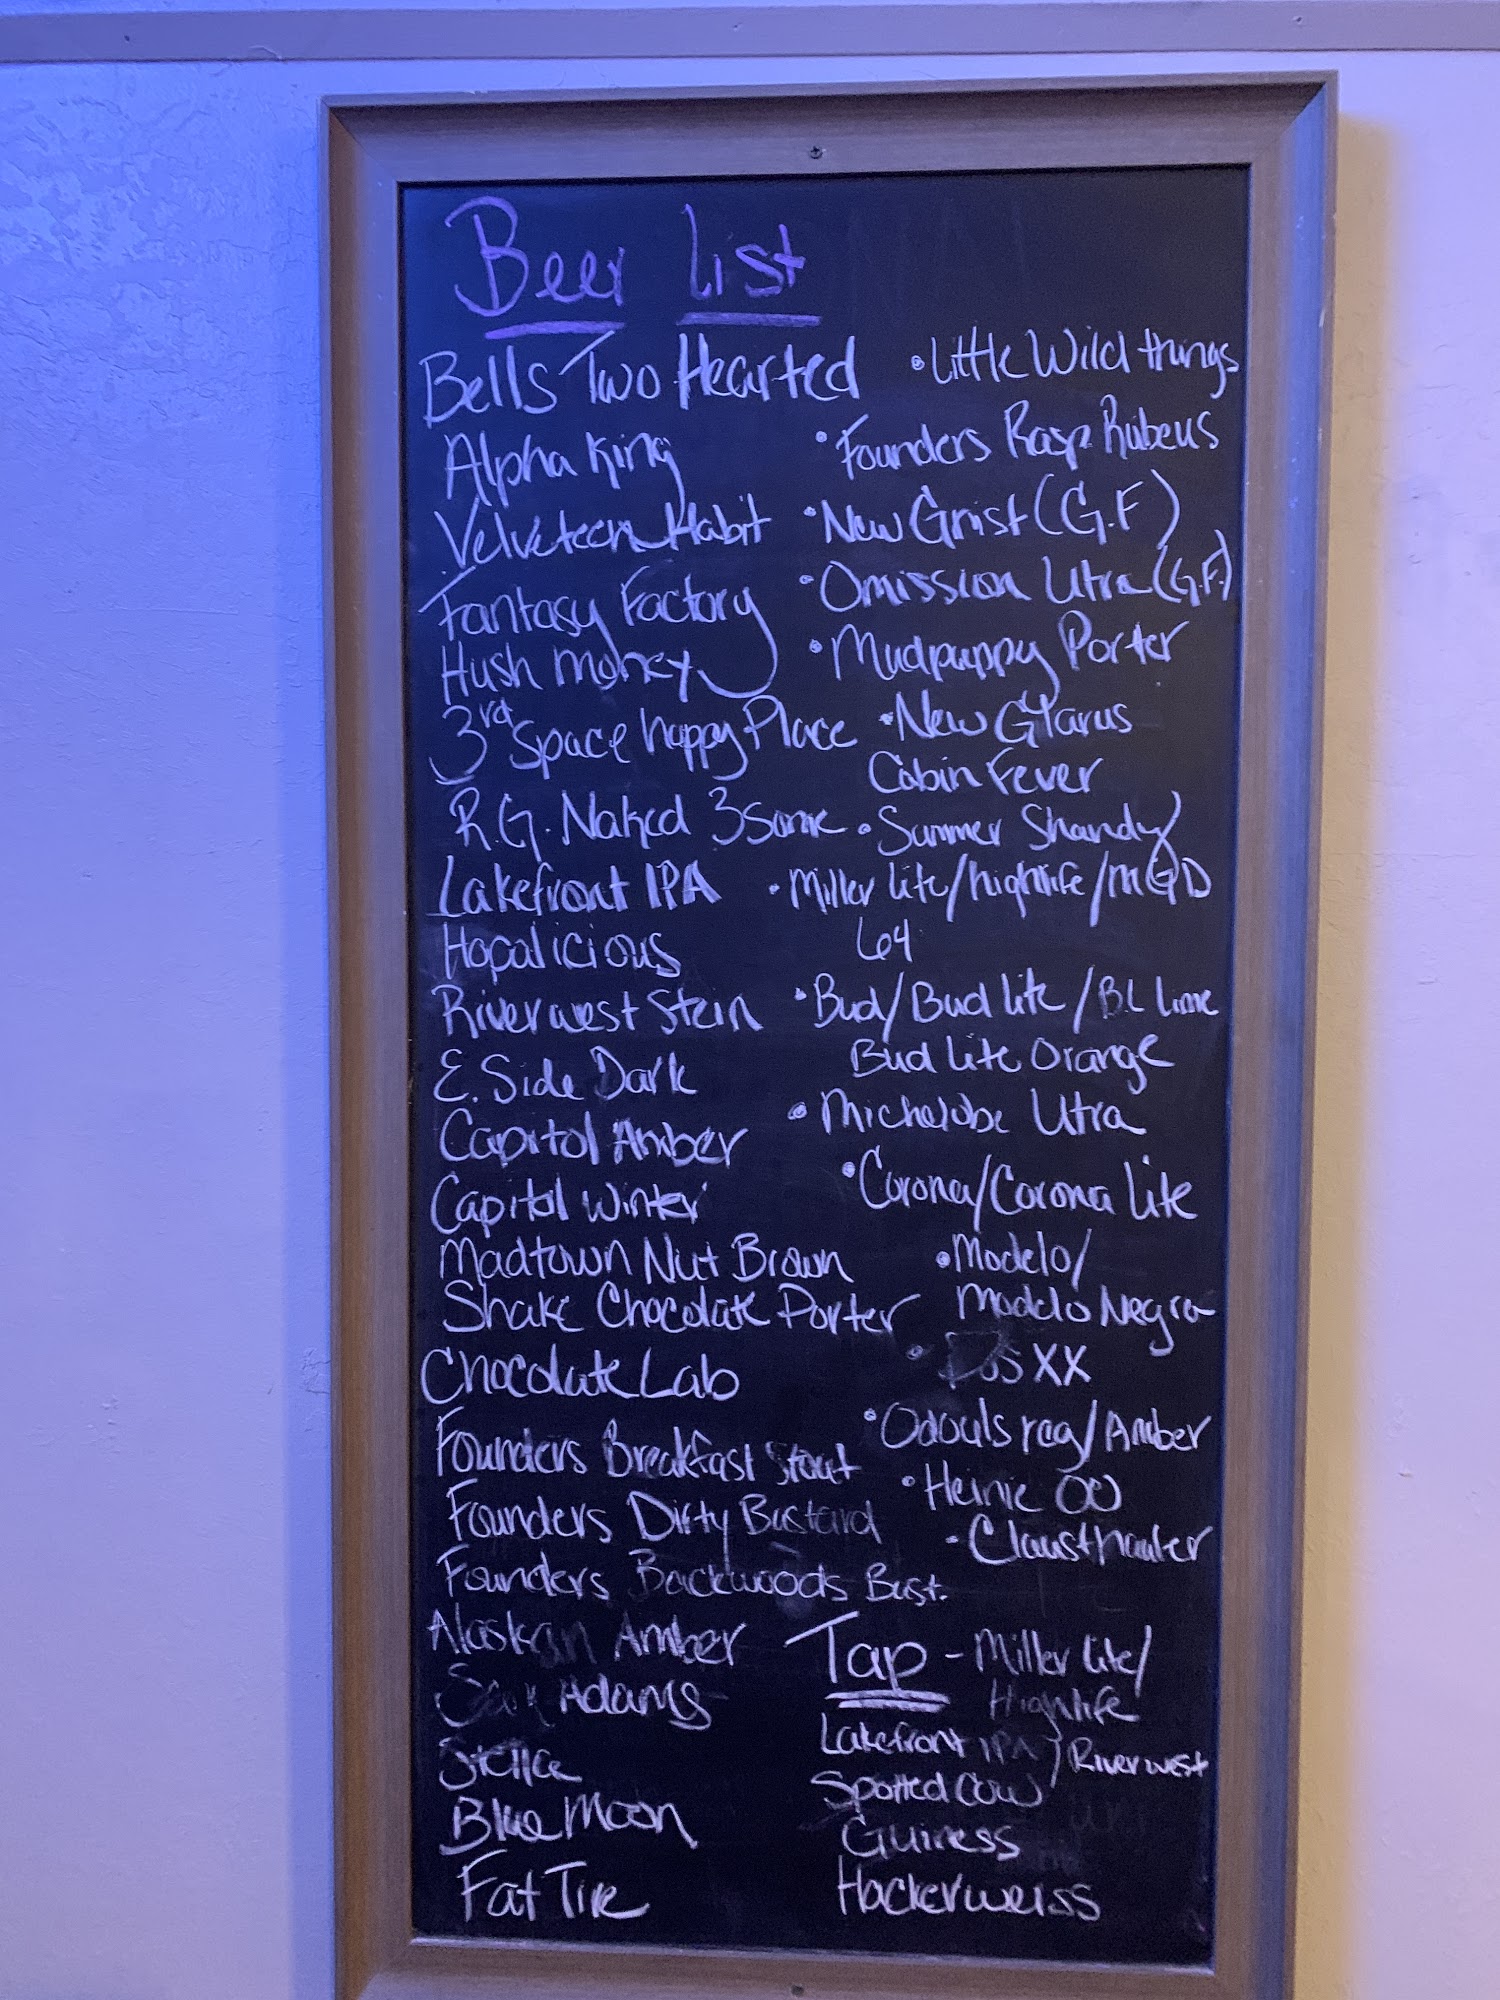 Beer List
Bells Two Hearted
Alpha King
Velveteen Habit
Fantasy Factory
Hush Money
3rd Space happy Place
R.G. Naked 3some
Lakefront IPA
Hopalicious
Riverwest Stein
E. Side Dark
Capitol Amber
Capitol Winter
Madtown Nut Brown
Shake Chocolate Porter
Chocolate Lab
Founders Breakfast Stout
Founders Dirty Bastard
Founders Backwoods Bast.
Alaskan Amber
Sam Adams
Stella
Blue Moon
Fat Tire
• Little Wild things
• Founders Rasp. Rubeus
• New Grist (G.F)
• Omission Utra (G.F.)
• Mudpuppy Porter
• New Glarus
Cabin Fever
• Summer Shandy
• Miller lite/highlife/MGD
64
• Bud/Bud lite/BL lime
Bud lite Orange
• Michelobe Utra
• Corona/Corona lite
• Modelo/
Modelo Negra
• Dos XX
• Odouls reg/Amber
• Heinie 00
- Clausthauler
Tap - Miller lite/
Highlife
Lakefront IPA / Riverwest
Spotted Cow
Guiness
Hackerweiss